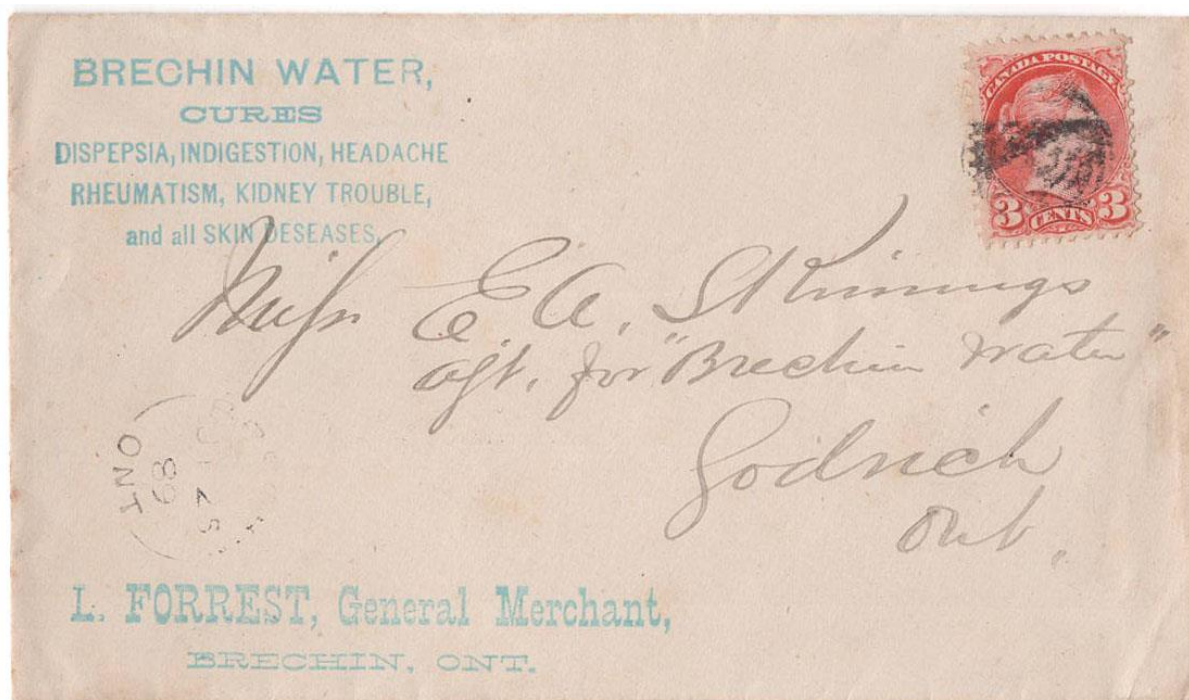 BRECHIN WATER,
CURES
DISPEPSIA, INDIGESTION, HEADACHE
RHEUMATISM, KIDNEY TROUBLE,
and all SKIN DESEASES,
CANADA POSTAGE
3 CENTS 3
Miss E A. Skimmings
agt. for "Brechin Water"
Godrich
Ont.
ONT
89
L. FORREST, General Merchant,
BRECHIN, ONT.